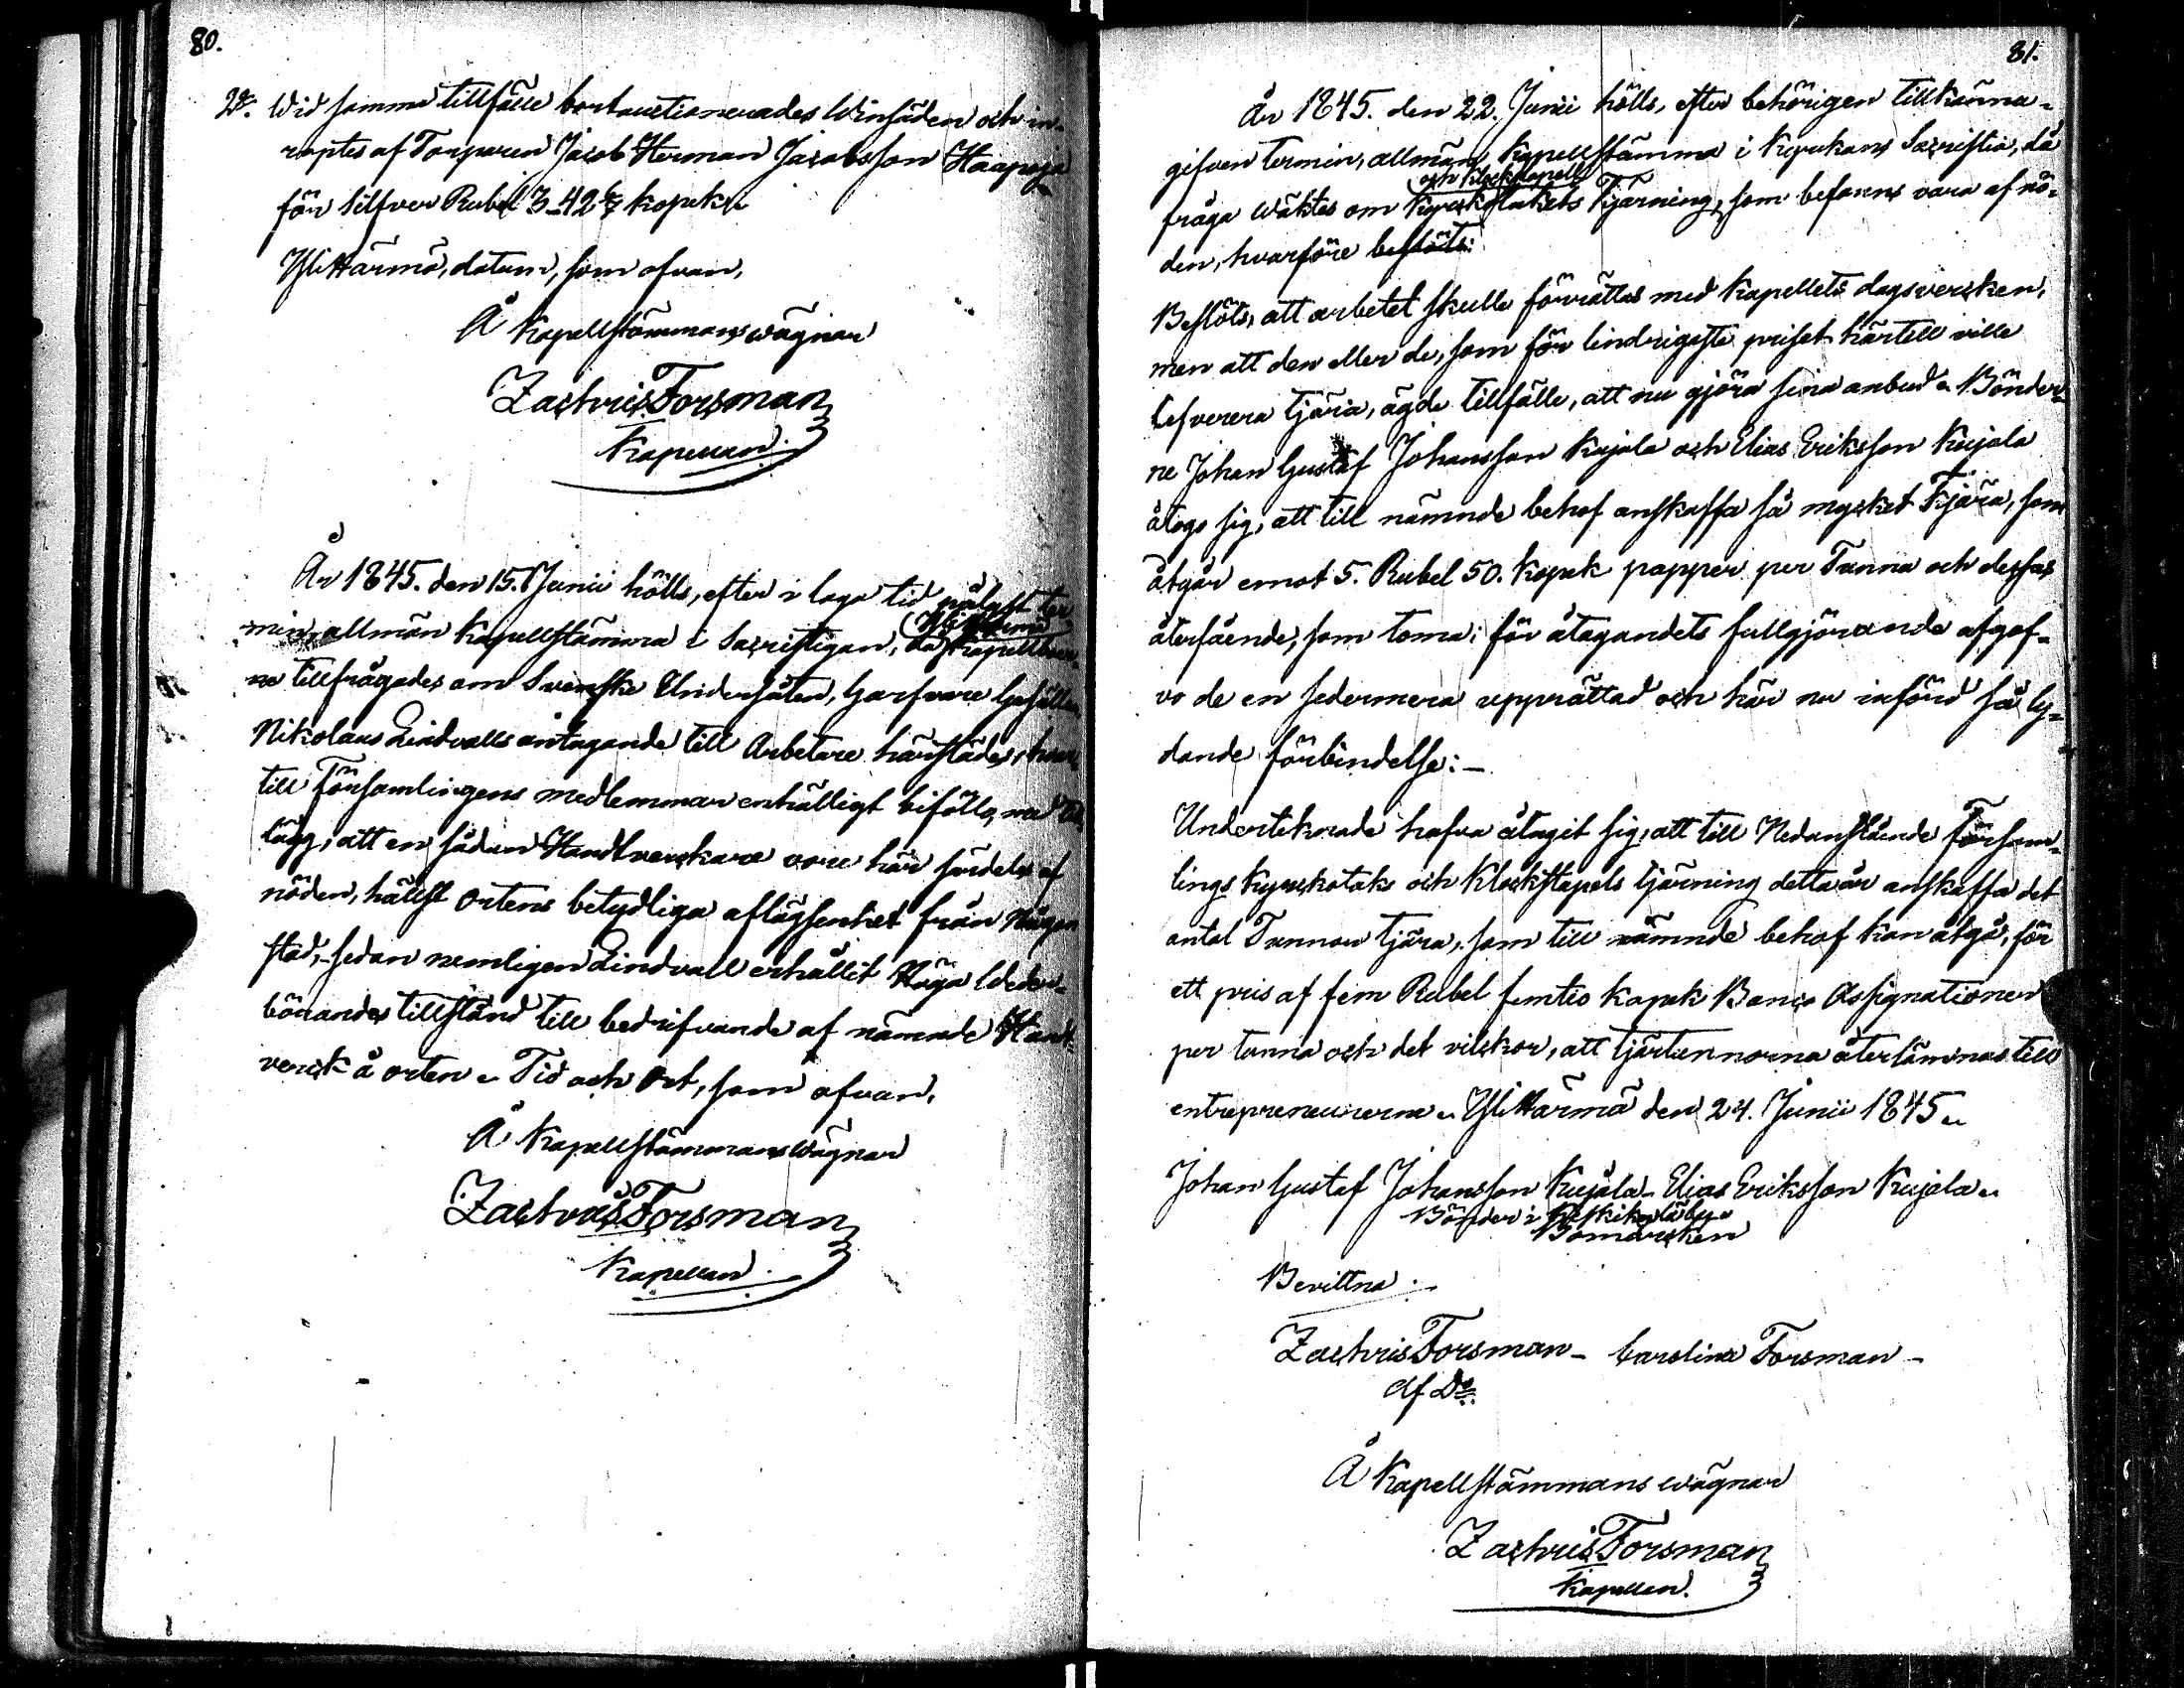 80.
2o. Wid samma tillfälle bortauctionerades Winsäden och in-
roptes af Torparen Jacob Herman Jacobsson Haapoja
för Silfver Rubel 3-42 6/7 kopek.
Yli Härmä, datum, som ofvan.
Å Kapellstämmans wägnar
Zachris Forsman
Kapellan.
År 1845. den 15. Junii hölls, efter i laga tid pålyst ter-
min, allmän Kapellstämma i Sacristigan, då Yli Härmä Kapellboer-
ne tillfrågades om Svenske Undersåten, Garfvare Gesällen
Nikolaus Lindvalls antagande till Arbetare härstädes, hvar-
till Församlingens medlemmar enhälligt biföllo, med til-
lägg, att en sådan Handtverckare vore här särdeles af
nöden, hällst ortens betydliga aflägsenhet från Någon
stad, sedan nemligen Lindvall erhållit Höga Weder-
börandes tillstånd till bedrifvande af nämnde Handt-
verck å orten. Tid och Ort, som ofvan.
Å Kapellstämmans Wägnar
Zachris Forsman
Kapellan.
81.
År 1845. den 22. Junii hölls, efter behörigen tillkänna-
gifven termin, allmän Kapellstämma i Kyrckans Sacristia, då
och Klockstapell
fråga wäktes om Kyrckotakets Tjärning, som befanns vara af nö-
den, hvarföre beslöts:
Beslöts, att arbetet skulle förrättas med Kapellets dagsvercken,
men att den eller de, som för lindrigaste priset härtill ville
lefverera tjära, ägde tillfälle, att nu gjöra sina anbud. Bönder-
ne Johan Gustaf Johansson Kujala och Elias Eriksson Kujala
åtogo sig, att till nämnde behof anskaffa så mycket Tjära, som
åtgår emot 5. Rubel 50. Kopek papper per Tunna och dessas
återfående, som toma; för åtagandets fullgjörande afgof-
vo de en sedermera upprättad och här nu införd så ly-
dande förbindelse:-
Undertecknade hafva åtagit sig, att till Nedanstående Försam-
lings Kyrckotaks och Klockstapels tjärning detta år anskaffa det
antal Tunnor tjära, som till nämnde behof kan åtgå, för
ett pris af fem Rubel femtio Kopek Banco Assignationer
per tunna och det vilckor, att tjärtunnorna återlämnas till
entrepreneurerna. Yli Härmä den 24. Junii 1845.
Johan Gustaf Johansson Kujala - Elias Eriksson Kujala.
Bönder i
Bomärcken
Bevittna:
Zachris Forsman - Carolina Forsman -
Af Do.
Å Kapellstämmans wägnar
Zachris Forsman
Kapellan.